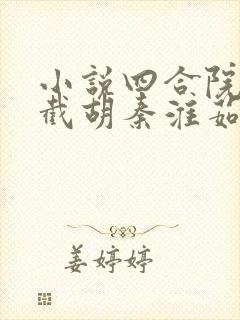 小说四合院
截胡秦淮如
姜婷婷